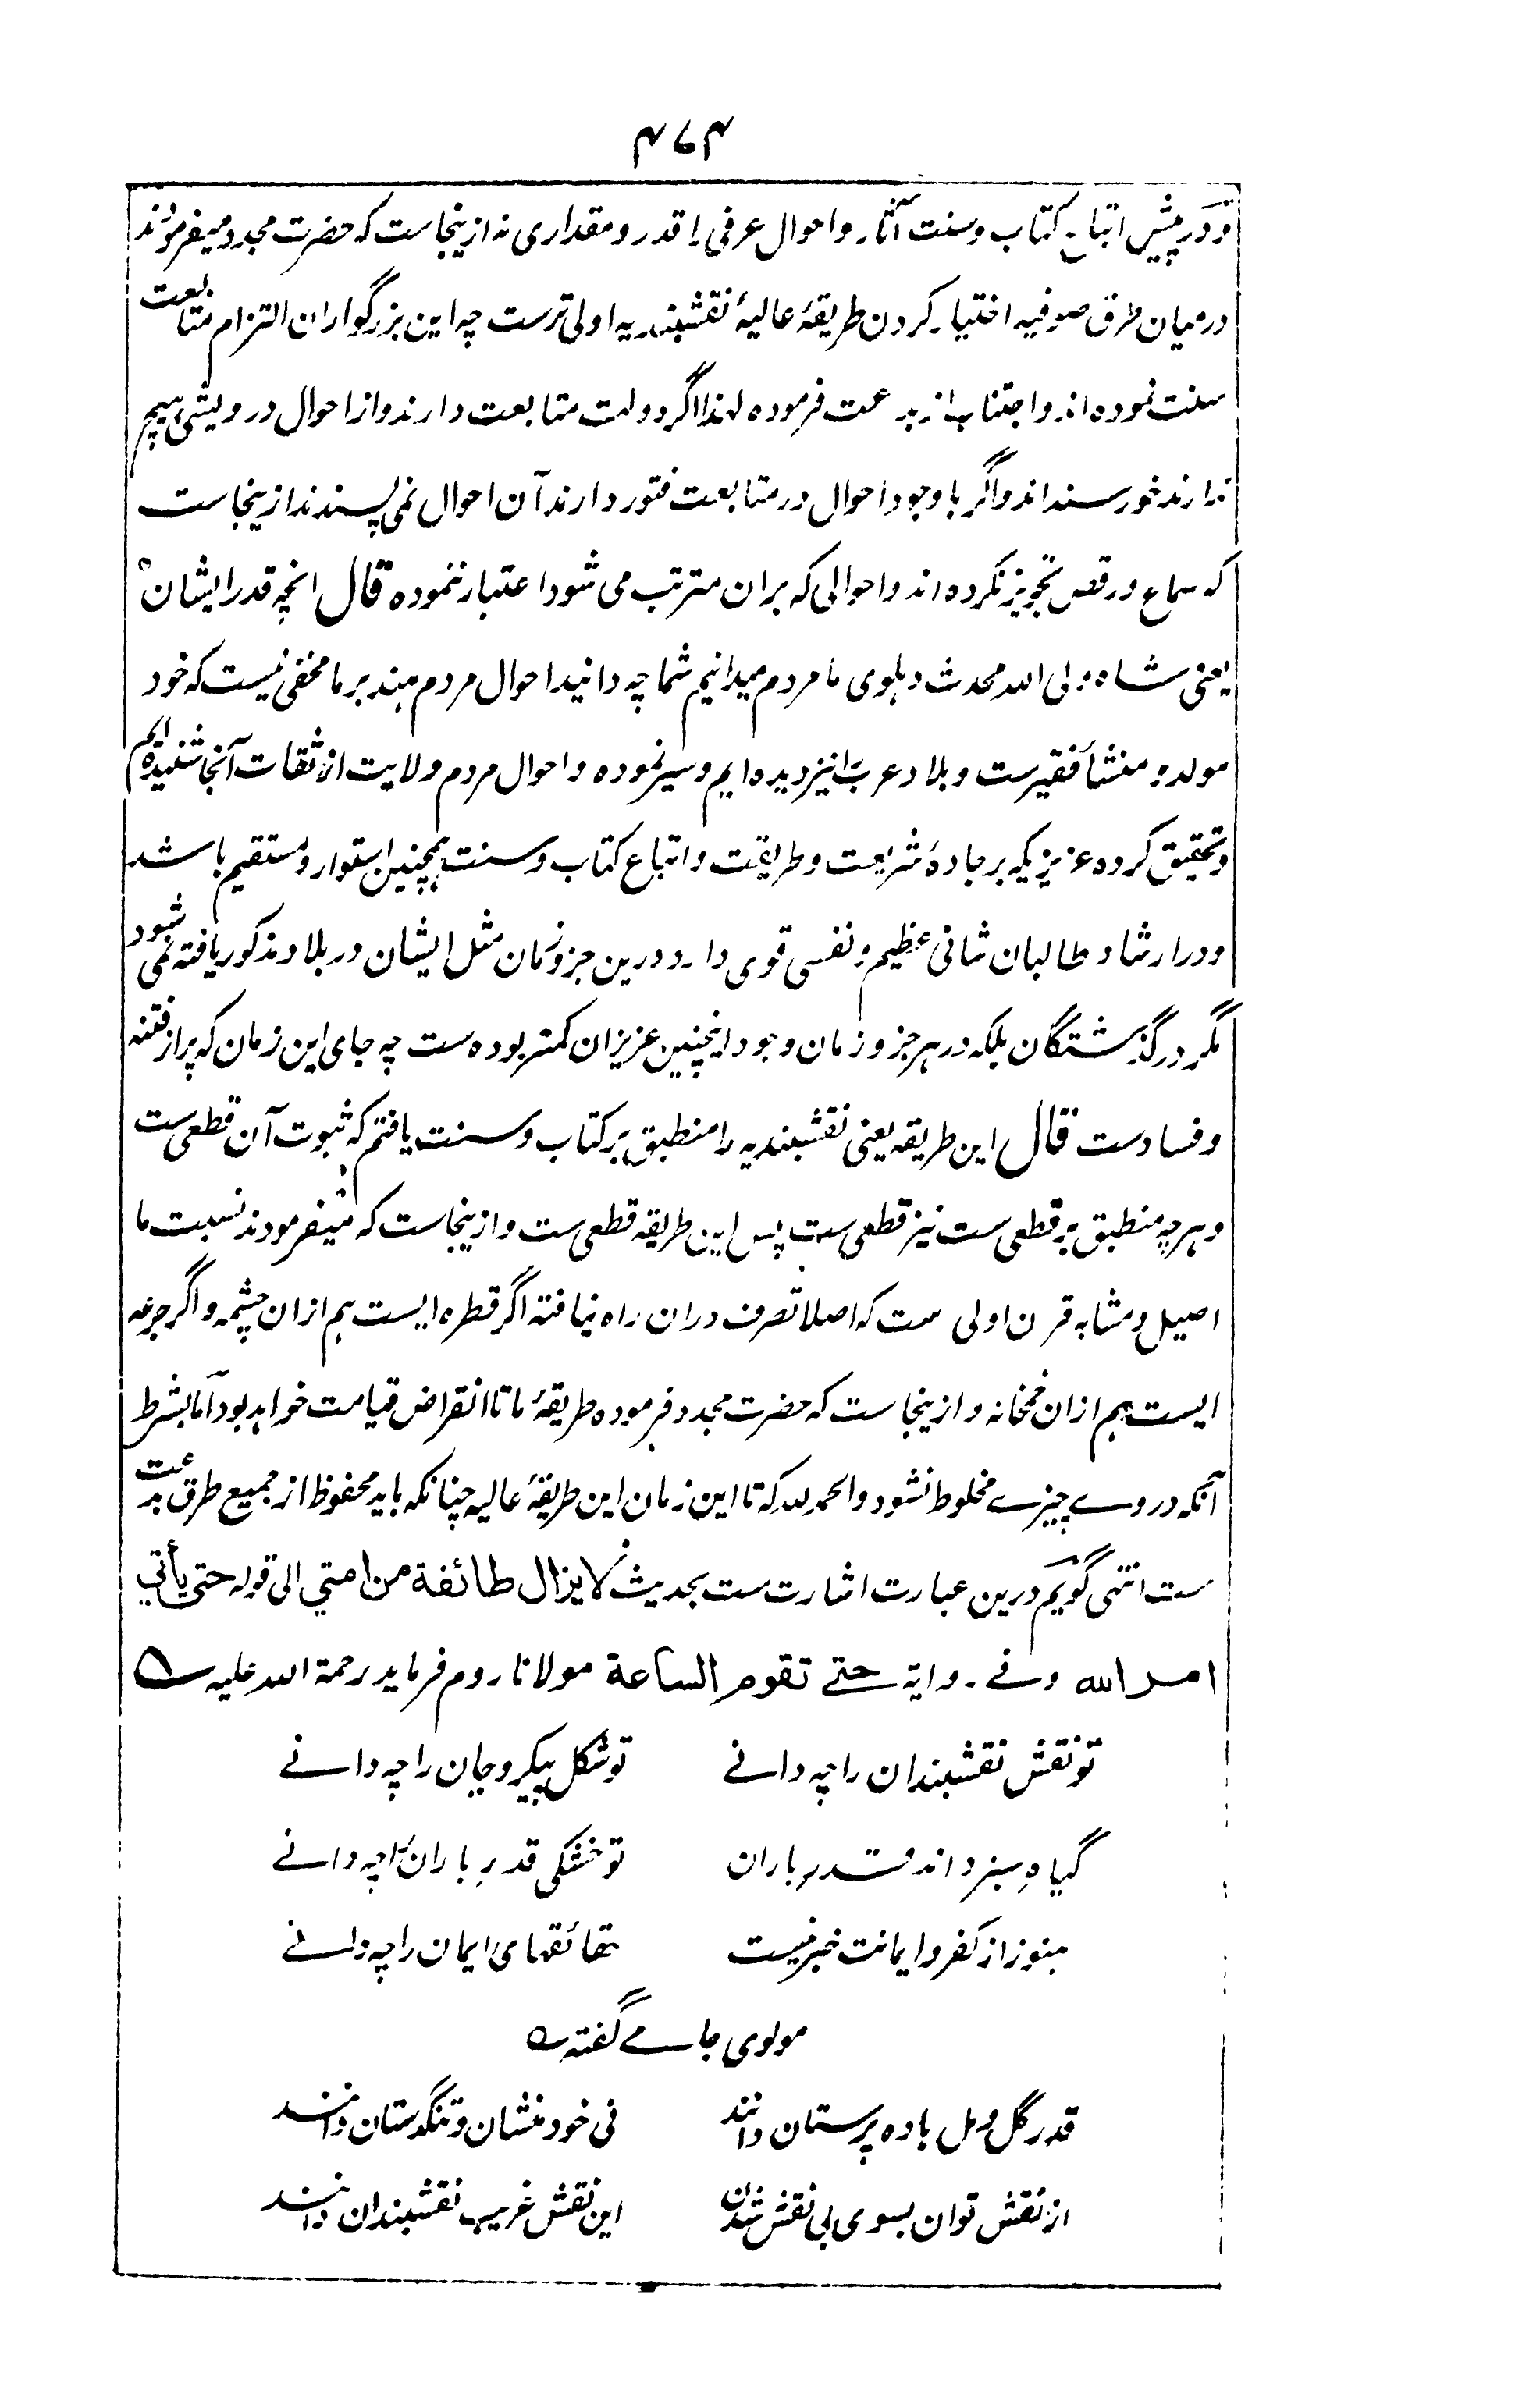 ۴۶۴
و در پیش اتباع کتاب و سنت آثار و احوال عرفی را قدر و مقداری نه ازینجاست که حضرت مجدد میفرموند
درمیان طرق صوفیه اختیار کردن طریقهٔ عالیهٔ نقشبندیه اولی ترست چه این بزرگواران التزام متابعت
سنت نموده اند و اجتناب از بدعت فرموده لهذا اگر دولت متابعت دارند و از احوال درویشی هیچ
ندارند خورسند اند و اگر با وجود احوال در متابعت فتور دارند آن احوال نمی پسندند ازینجاست
که سماع و رقص تجویز نکرده اند و احوالی که بران مترتب می شود اعتبار ننموده قال انچه قدر ایشان
یعنی شاه ولی الله محدث دهلوی ما مردم میدانیم شما چه دانید احوال مردم هند بر ما مخفی نیست که خود
مولد و منشأ فقیرست و بلاد عرب را نیز دیده ایم و سیر نموده و احوال مردم ولایت از ثقات آنجا شنیده ایم
و تحقیق کرده عزیزیکه بر جادهٔ شریعت و طریقت و اتباع کتاب و سنت همچنین استوار و مستقیم باشد
و در ارشاد طالبان شانی عظیم و نفسی قوی دارد درین جزو زمان مثل ایشان در بلاد مذکور یافته نمی شود
مگر در گذشتگان بلکه در هر جزو زمان وجود اینچنین عزیزان کمتر بوده ست چه جای این زمان که پر از فتنه
و فسادست قال این طریقه یعنی نقشبندیه را منطبق بر کتاب و سنت یافتم که ثبوت آن قطعی ست
و هرچه منطبق بر قطعی ست نیز قطعی ست پس این طریقه قطعی ست و ازینجاست که میفرمودند نسبت ما
اصیل و مشابه قرن اولی ست که اصلا تصرف دران راه نیافته اگر قطره ایست هم ازان چشمه و اگر جرعه
ایست هم ازان خمخانه و ازینجاست که حضرت مجدد فرموده طریقهٔ ما تا انقراض قیامت خواهد بود اما بشرط
آنکه در وے چیزے مخلوط نشود و الحمد لله که تا این زمان این طریقهٔ عالیه چنانکه باید محفوظ از جمیع طرق بدعت
ست انتهی گویم درین عبارت اشارت ست بحدیث لا یزال طائفة من امتي الی قوله حتی یأتي
امر الله وفے روایة حتے تقوم الساعة مولانا روم فرماید رحمة الله علیه ؎
تو نقش نقشبندان را چه دانے تو شکل پیکر و جان را چه دانے
گیاه سبز داند قدر باران تو خشکی قدر باران را چه دانے
هنوز از کفر و ایمانت خبر نیست حقائقهای ایمان را چه دانے
مولوی جامے گفته ؎
قدر گل و مل باده پرستان دانند نی خود منشان و تنگدستان دانند
از نقش توان بسوی بی نقش شدن این نقش غریب نقشبندان دانند